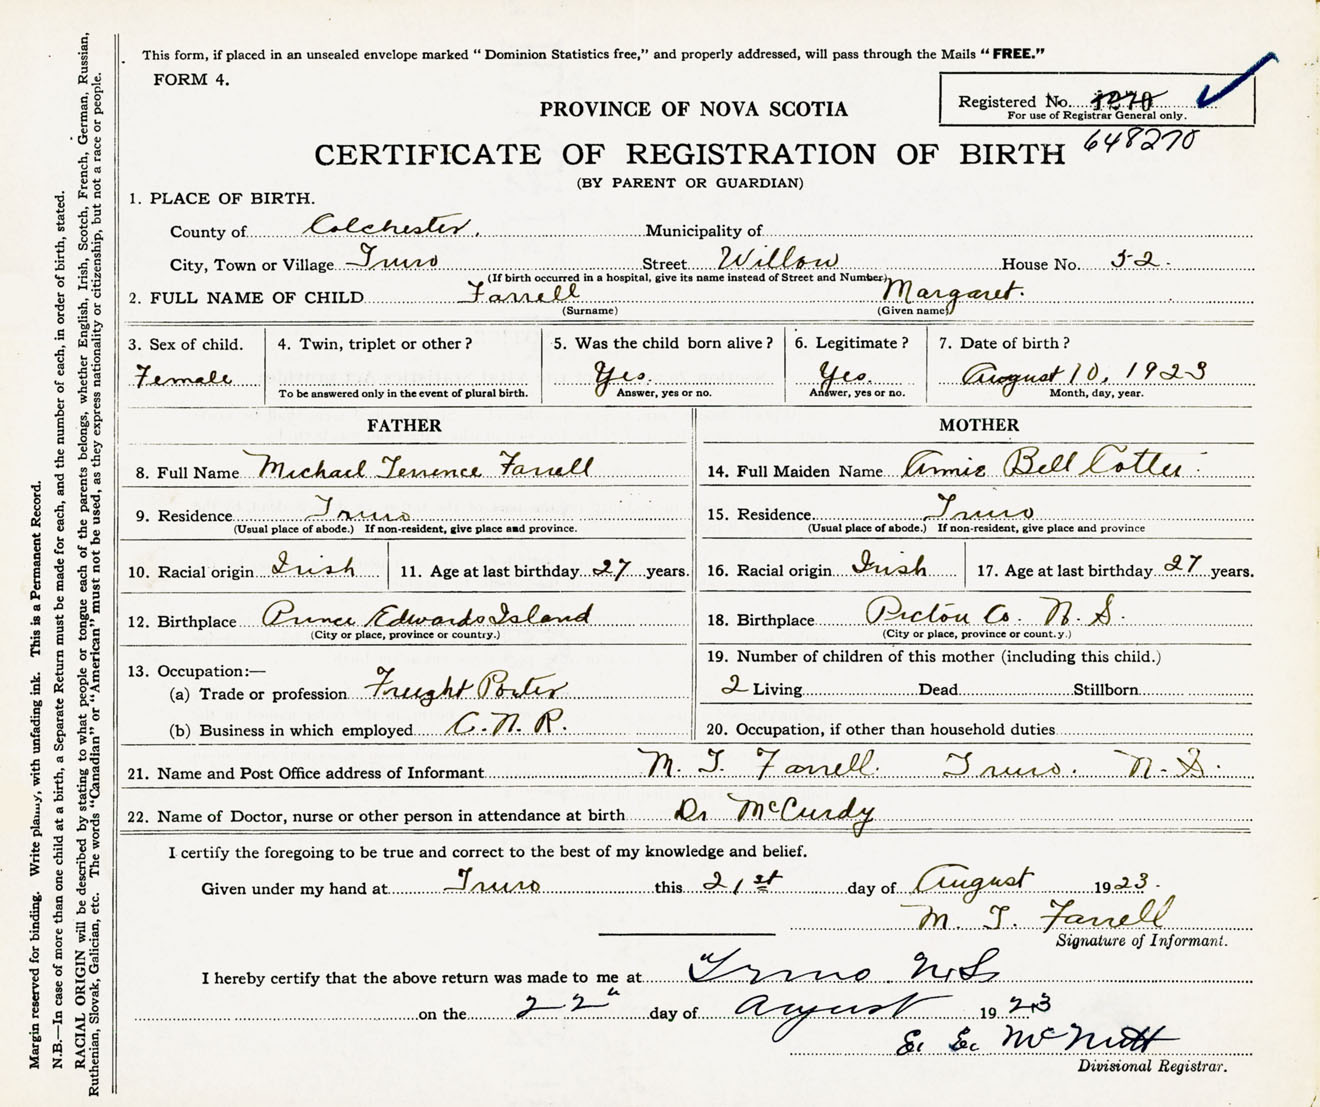 This form, if placed in an unsealed envelope marked “ Dominion Statistics free,” and properly addressed, will pass through the Mails “ FREE.”
FORM 4.
Registered No. 1270
For use of Registrar General only.
648270
PROVINCE OF NOVA SCOTIA
CERTIFICATE OF REGISTRATION OF BIRTH
(BY PARENT OR GUARDIAN)
1. PLACE OF BIRTH.
County of Colchester. Municipality of
City, Town or Village Truro Street Willow House No. 52.
(If birth occurred in a hospital, give its name instead of Street and Number)
2. FULL NAME OF CHILD Farrell Margaret.
(Surname) (Given name)
3. Sex of child. 4. Twin, triplet or other ? 5. Was the child born alive ? 6. Legitimate ? 7. Date of birth ?
Female Yes. Yes. August 10, 1923
To be answered only in the event of plural birth. Answer, yes or no. Answer, yes or no. Month, day, year.
FATHER MOTHER
8. Full Name Michael Terrence Farrell 14. Full Maiden Name Annie Bell Cotter
9. Residence Truro 15. Residence Truro
(Usual place of abode.) If non-resident, give place and province. (Usual place of abode.) If non-resident, give place and province
10. Racial origin Irish 11. Age at last birthday 27 years. 16. Racial origin Irish 17. Age at last birthday 27 years.
12. Birthplace Prince Edwards Island 18. Birthplace Pictou Co. N. S.
(City or place, province or country.) (City or place, province or count.y.)
13. Occupation:— 19. Number of children of this mother (including this child.)
(a) Trade or profession Freight Porter 2 Living Dead Stillborn
(b) Business in which employed C. N. R. 20. Occupation, if other than household duties
21. Name and Post Office address of Informant M. T. Farrell. Truro. N. S.
22. Name of Doctor, nurse or other person in attendance at birth Dr McCurdy
I certify the foregoing to be true and correct to the best of my knowledge and belief.
Given under my hand at Truro this 21st day of August 1923.
M. T. Farrell
Signature of Informant.
I hereby certify that the above return was made to me at Truro N.S
on the 22" day of August 1923
E. E. McNutt
Divisional Registrar.
Margin reserved for binding. Write plainly, with unfading ink. This is a Permanent Record.
N.B.—In case of more than one child at a birth, a Separate Return must be made for each, and the number of each, in order of birth, stated.
RACIAL ORIGIN will be described by stating to what people or tongue each of the parents belongs, whether English, Irish, Scotch, French, German, Russian,
Ruthenian, Slovak, Galician, etc. The words “Canadian” or “American” must not be used, as they express nationality or citizenship, but not a race or people.